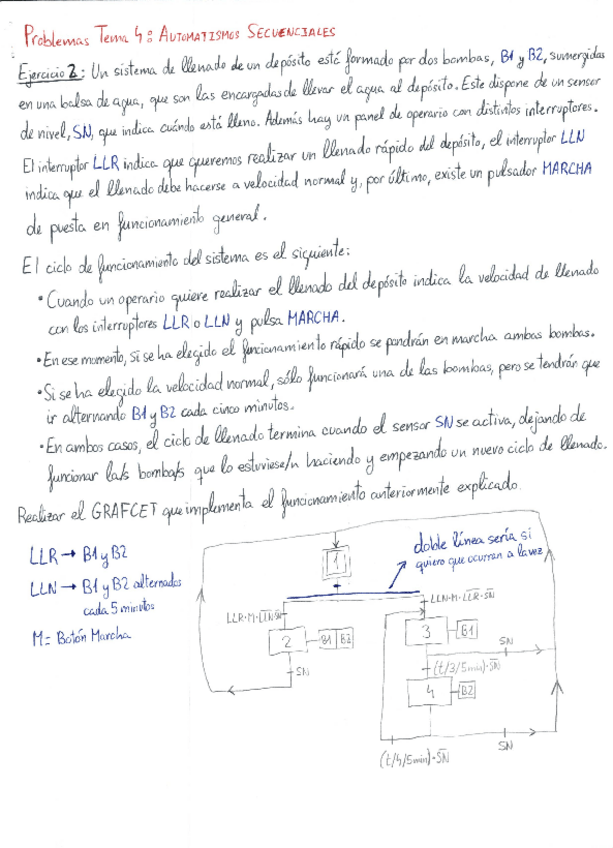 Problemas Tema 4: AUTOMATISMOS SECUENCIALES
Ejercicio 2: Un sistema de llenado de un depósito está formado por dos bombas, B1 y B2, sumergidas
en una balsa de agua, que son las encargadas de llevar el agua al depósito. Este dispone de un sensor
de nivel, SN, que indica cuándo está lleno. Además hay un panel de operario con distintos interruptores.
El interruptor LLR indica que queremos realizar un llenado rápido del depósito, el interruptor LLN
indica que el llenado debe hacerse a velocidad normal y, por último, existe un pulsador MARCHA
de puesta en funcionamiento general.
El ciclo de funcionamiento del sistema es el siguiente:
• Cuando un operario quiere realizar el llenado del depósito indica la velocidad de llenado
con los interruptores LLR o LLN y pulsa MARCHA.
• En ese momento, si se ha elegido el funcionamiento rápido se pondrán en marcha ambas bombas.
• Si se ha elegido la velocidad normal, sólo funcionará una de las bombas, pero se tendrán que
ir alternando B1 y B2 cada cinco minutos.
• En ambos casos, el ciclo de llenado termina cuando el sensor SN se activa, dejando de
funcionar la/s bomba/s que lo estuviese/n haciendo y empezando un nuevo ciclo de llenado.
Realizar el GRAFCET que implementa el funcionamiento anteriormente explicado.
LLR → B1 y B2
LLN → B1 y B2 alternados
cada 5 minutos
M = Botón Marcha
1
doble línea sería si
quiero que ocurran a la vez
LLR·M·L̅L̅N̅·S̅N̅
LLN·M·L̅L̅R̅·S̅N̅
2
B1 B2
3
B1
SN
SN
(t/3/5min)·S̅N̅
4
B2
SN
(t/4/5min)·S̅N̅